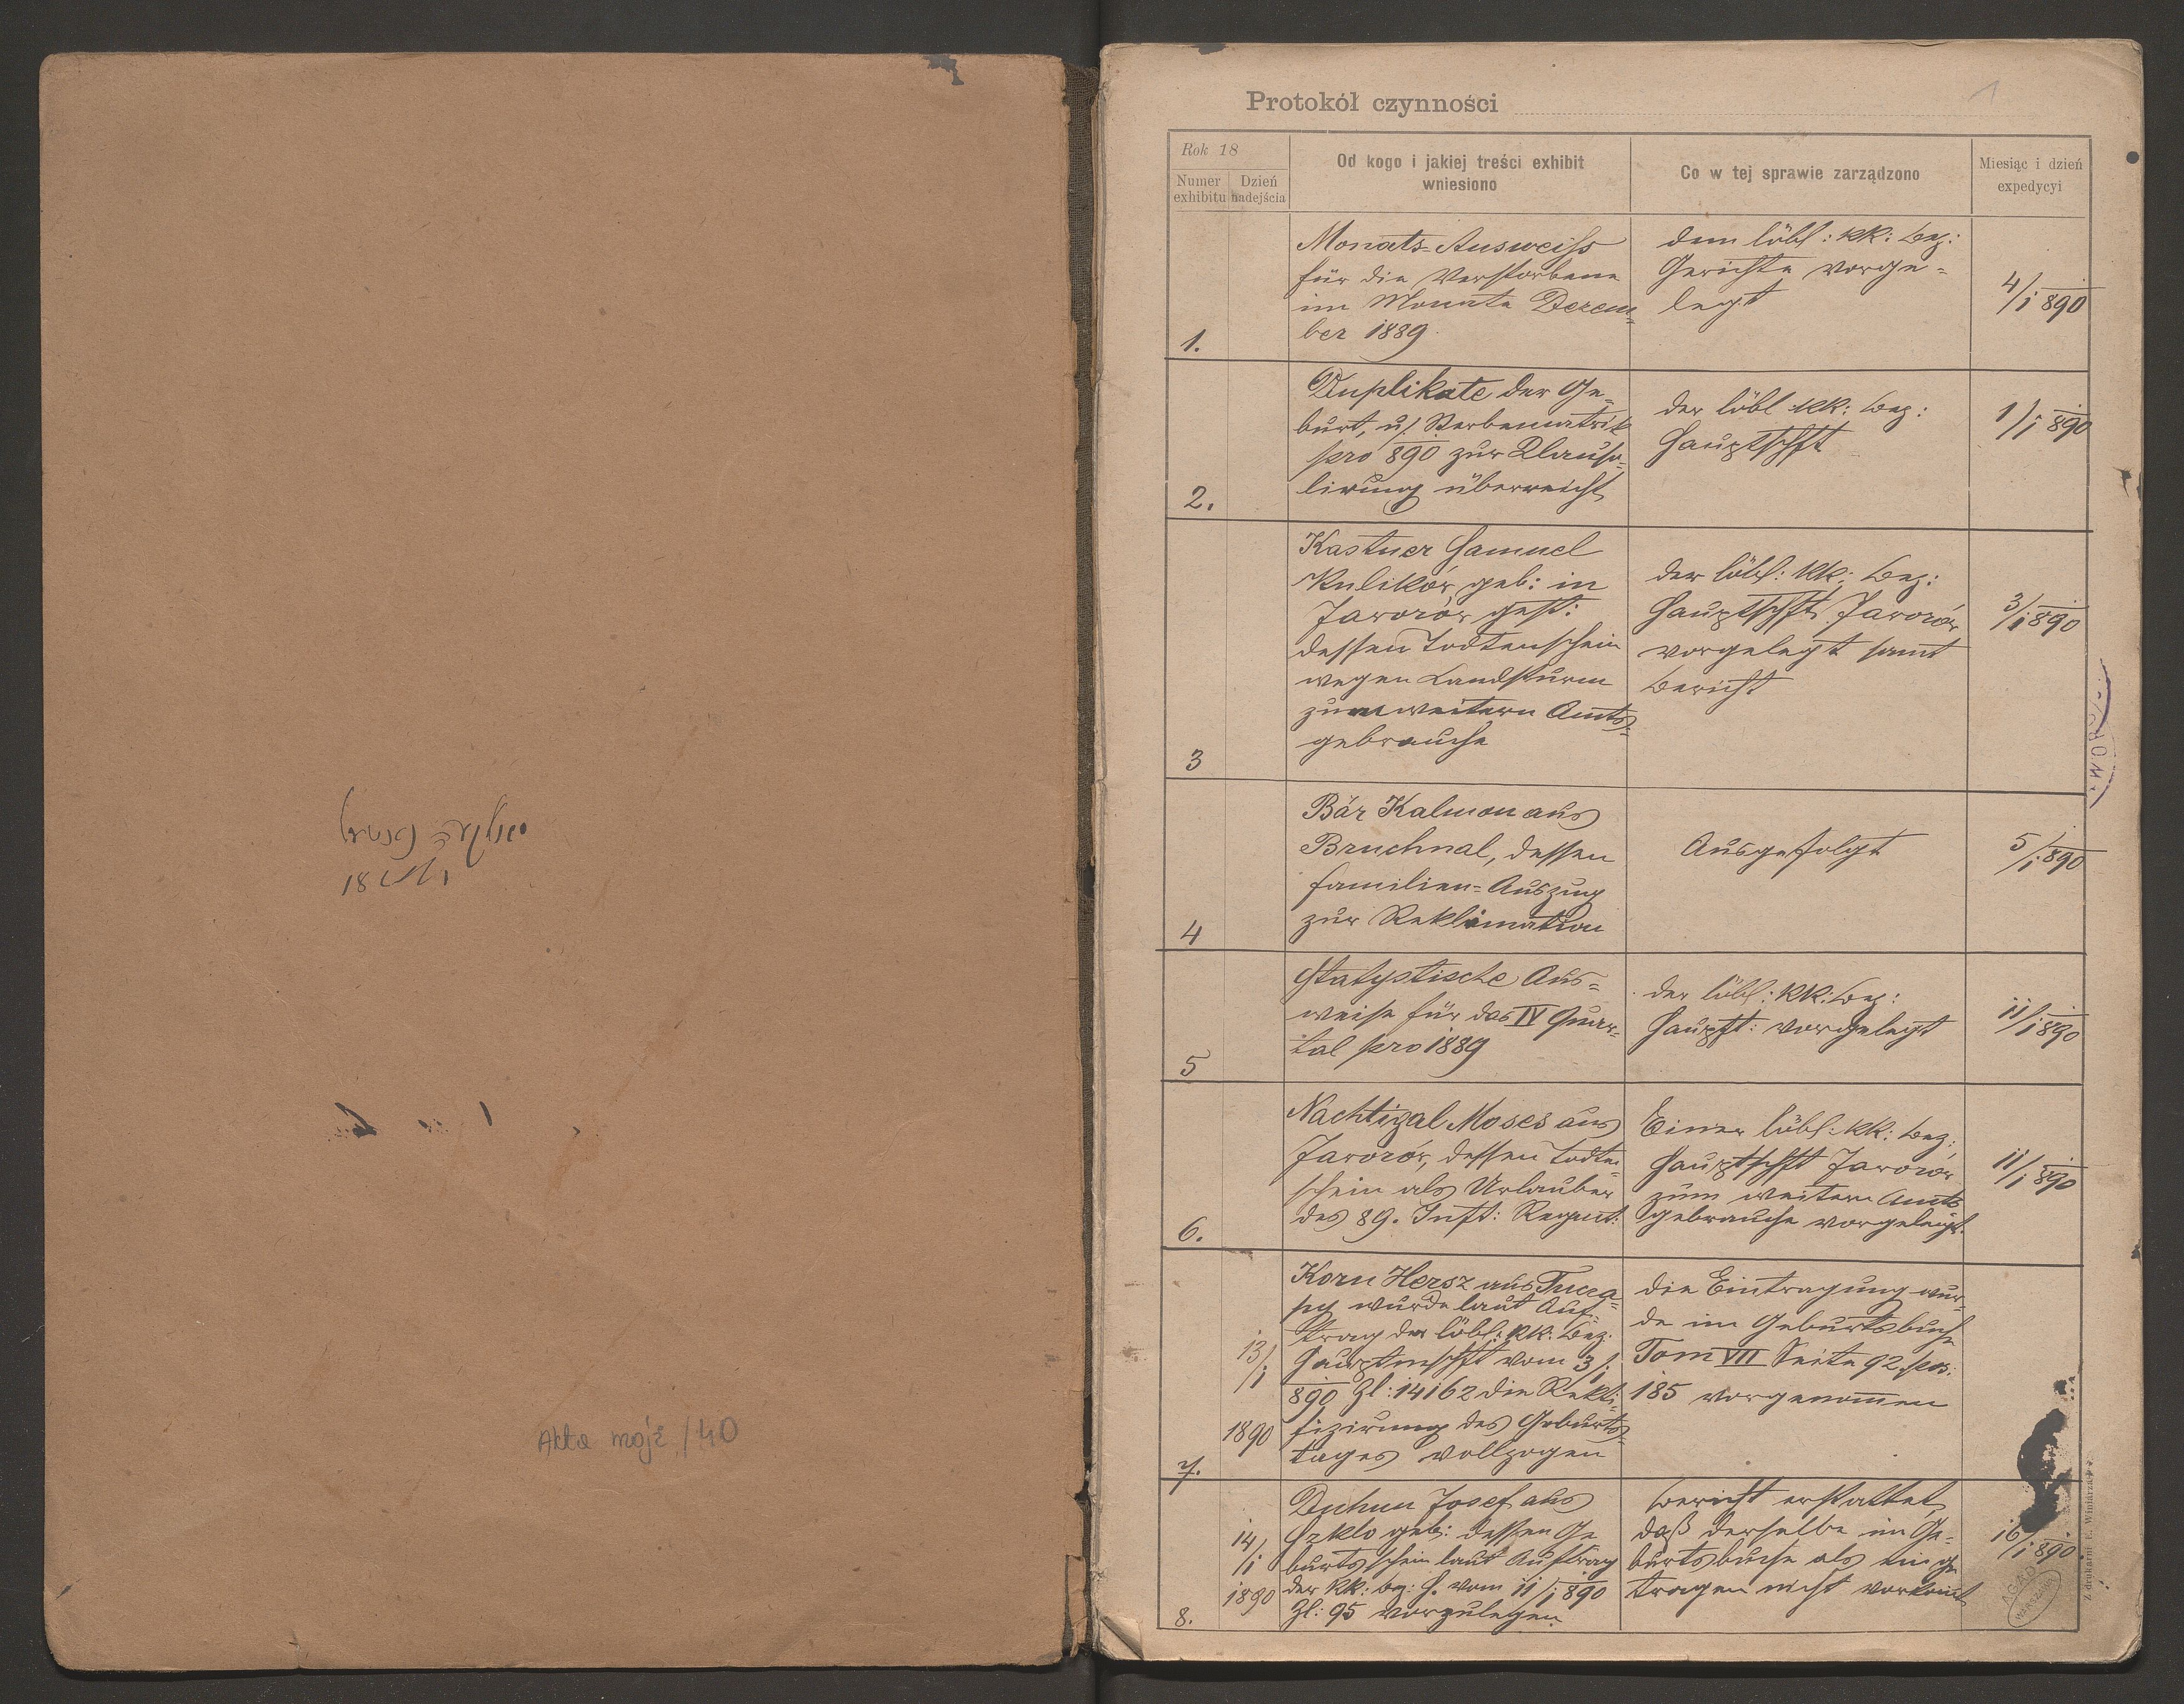 Akta mojż /40
1
Protokół czynności
Rok 18
Numer exhibitu
Dzień nadejścia
Od kogo i jakiej treści exhibit
wniesiono
Co w tej sprawie zarządzono
Miesiąc i dzień
expedycyi
1.
Monats-Ausweiss
für die Verstorbene
im Monate Dezem-
ber 1889
dem löbl: kk: Bez:
Gerichte vorge-
legt
4/1 890
2.
Duplikate der Ge-
burt, u/ Sterbematrik
pro 890 zur Klausu-
lirung überreicht
der löbl kk: Bez:
Hauptschft
1/1 890
3
Kastner Samuel
Kulików geb: in
Jaworów gest:
dessen Todtenschein
wegen Landsturm
zum weitern Amts-
gebrauche
der löbl: kk: Bez:
Hauptschft Jaworów
vorgelegt samt
Bericht
3/1 890
4
Bär Kalmon aus
Bruchnal, dessen
Familien-Auszug
zur Reklamation
Ausgefolgt
5/1 890
5
Statystische Aus-
weise für das IV Quar-
tal pro 1889
der löbl: kk: Bez:
Hauptft: vorgelegt
11/1 890
6.
Nachtigal Moses aus
Jaworów, dessen Todten-
schein als Urlauber
des 89. Inft: Regmt:
Einer löbl: kk: Bez:
Hauptschft Jaworów
zum weitern Amts
gebrauche vorgelegt.
11/1 890
7.
13/1
1890
Korn Hersz aus Tucza-
py wurde laut Auf-
trag der löbl: kk: Bez:
Hauptmschft vom 3/1
890 Zl: 14162 die Rekti-
fizirung des Geburts-
tages vollzogen
die Eintragung wur-
de im Geburtsbuche
Tom VII Seite 92 pos:
185 vorgenommen
8.
14/1
1890
Josef aus
Szkło geb: dessen Ge
burtsschein laut Auftrag
der kk: Bez: H. vom 11/1 890
Zl: 95 vorzulegen
Bericht erstattet,
daß derselbe im Ge-
burtsbuche als einge
tragen nicht vorkomt
16/1 890
Z drukarni E. Winiarza
AGAD
WARSZAWA